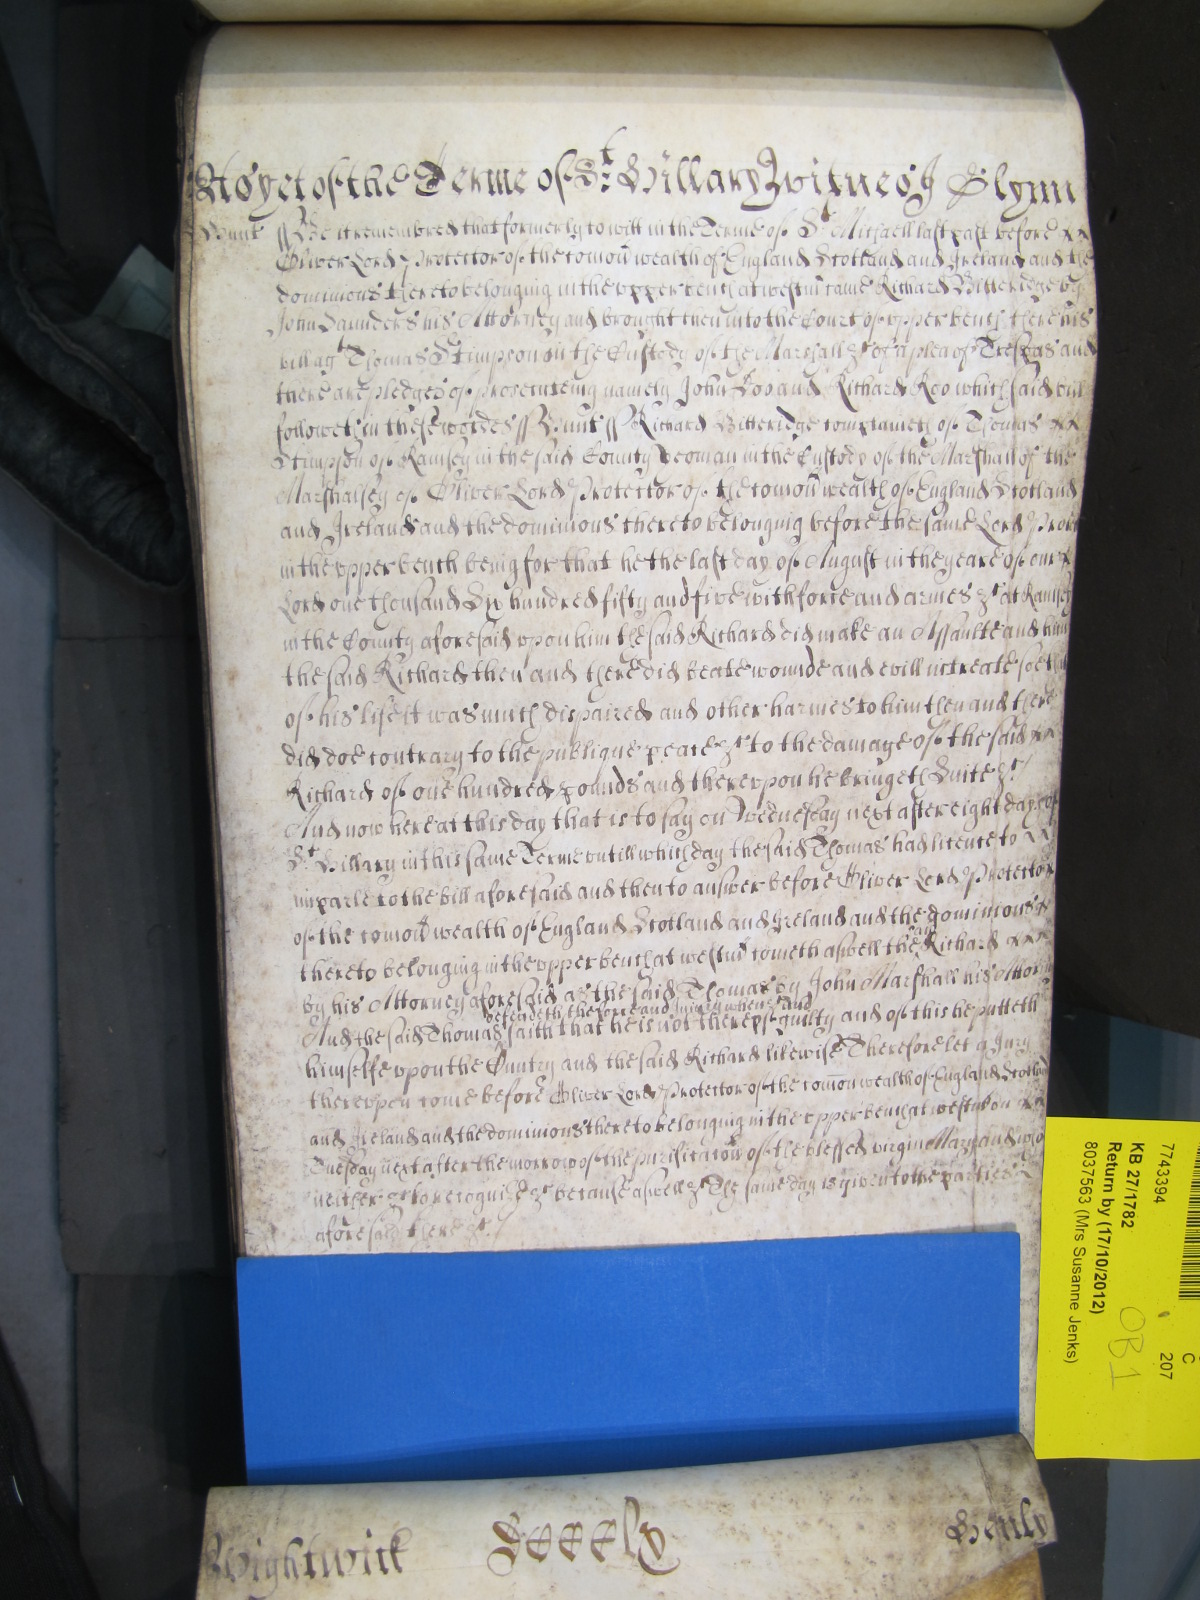 As yet of the Terme of St Hillary Witnes J Glynn
Hunt ss Be it remembred that formerly to witt in the Terme of St Michaell last past before
Oliver Lord Protector of the comon wealth of England Scotland and Ireland and the
dominions thereto belonging in the upper bench at westmr came Richard Bitteridge by
John Saunders his Attorney and brought then into the Court of upper bench there his
bill agt Thomas Stimpson in the Custody of the Marshall &c of a plea of Trespas and
there are pledges of prosecuteing namely John Doo and Richard Roo which said bill
followeth in these wordes ss Hunt ss Richard Bitteridge complaineth of Thomas
Stimpson of Ramsey in the said County yeoman in the Custody of the Marshall of the
Marshalsey of Oliver Lord Protector of the comon wealth of England Scotland
and Ireland and the dominions thereto belonging before the same Lord Protector
in the upper bench being for that he the last day of August in the yeare of our
Lord one thousand Six hundred fifty and five with force and armes &c at Ramsey
in the County aforesaid upon him the said Richard did make an Assaulte and him
the said Richard then and there did beate wounde and evill intreate soe that
of his life it was much dispaired and other harmes to him then and there
did doe contrary to the publique peace &c to the damage of the said
Richard of one hundred pounds and thereupon he bringeth Suite &c
And now here at this day that is to say on Wednesday next after eight dayes of
St Hillary in this same Terme untill which day the said Thomas had licence to
imparle to the bill aforesaid and then to answer before Oliver Lord Protector
of the comon wealth of England Scotland and Ireland and the dominions
thereto belonging in the upper bench at westmr cometh aswell the said Richard
by his Attorney aforesaid as the said Thomas by John Marshall his Attorney
defendeth the force and Injury when &c and
And the said Thomas saith that he is not thereof guilty and of this he putteth
himselfe upon the Cuntry and the said Richard likewise Therefore let a Jury
thereupon come before Oliver Lord Protector of the comon wealth of England Scotland
and Ireland and the dominions thereto belonging in the upper bench at westmr on
Tuesday next after the morrow of the purificacon of the blessed virgin Mary and who
neither &c to recognise &c because aswell &c The same day is given to the parties
aforesaid there &c
Wightwick Seeely Henly
7743394
KB 27/1782
Return by (17/10/2012)
8037563 (Mrs Susanne Jenks)
C
207
OB1